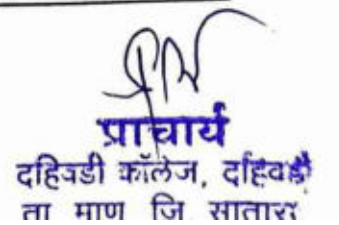 प्राचार्य
दहिवडी कॉलेज, दहिवडी
ता माण जि सातारा